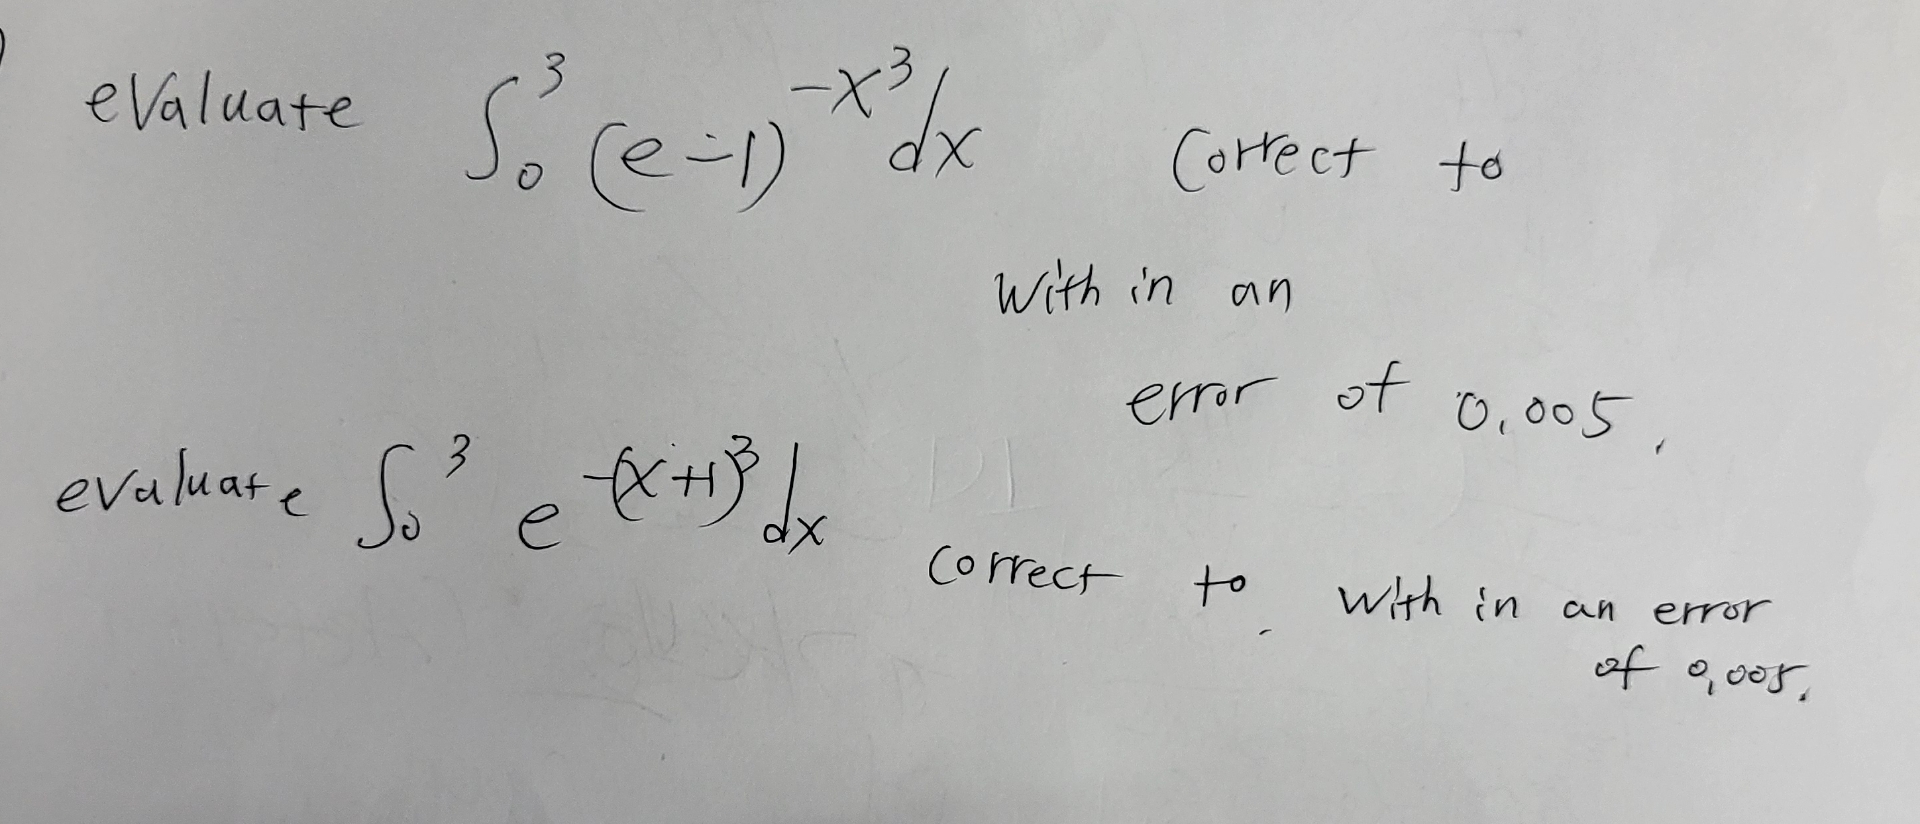 evaluate ∫₀³ (e-1)^{-x³} dx correct to
with in an
error of 0.005.
evaluate ∫₀³ e^{-(x+1)³} dx correct to with in an error
of 0.005.